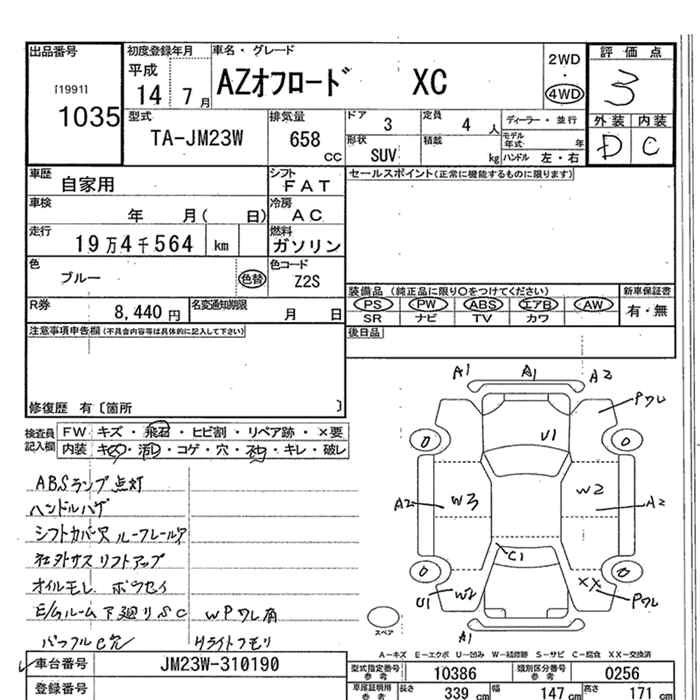 出品番号 初度登録年月 車名・グレード 2WD・4WD 評価点
[1991] 1035 平成14 7月 AZオフロード XC 3
型式 排気量 ドア 3 定員 4人 ディーラー・並行 外装 内装
TA-JM23W 658cc 形状 SUV 積載 kg モデル年式 年 ハンドル 左・右 D C
車歴 自家用 シフト FAT セールスポイント(正常に機能するものに限ります)
車検 年 月( 日) 冷房 AC
走行 19万4千564 km 燃料 ガソリン
色 ブルー 色替 色コード Z2S
装備品 (純正品に限り○をつけてください) 新車保証書
PS PW ABS エアB AW 有・無
SR ナビ TV カワ
R券 8,440円 名変通知期限 月 日
注意事項申告欄(不具合内容等は具体的に記入して下さい) 後日品
修復歴 有〔箇所 〕
検査員記入欄 FW キズ・飛石・ヒビ割・リペア跡・×要
内装 キズ・汚レ・コゲ・穴・キレ・破レ
ABSランプ点灯
ハンドルハゲ
シフトカバー穴 ルーフレールア
社外サス リフトアップ
オイルモレ
E/Gルーム下廻りSC WPワレ有
バッフルC穴 Hライトクモリ
A1 A1 A2
Pワレ
U1
A2 W3 W2 A2
C1
U1 W2 XX Pワレ
A1
スペア
A-キズ E-エクボ U-凹み W-補修跡 S-サビ C-腐食 XX-交換済
車台番号 JM23W-310190 型式指定番号 参考 10386 類別区分番号 参考 0256
登録番号 車庫証明用 参考 長さ 339cm 幅 147cm 高さ 171cm